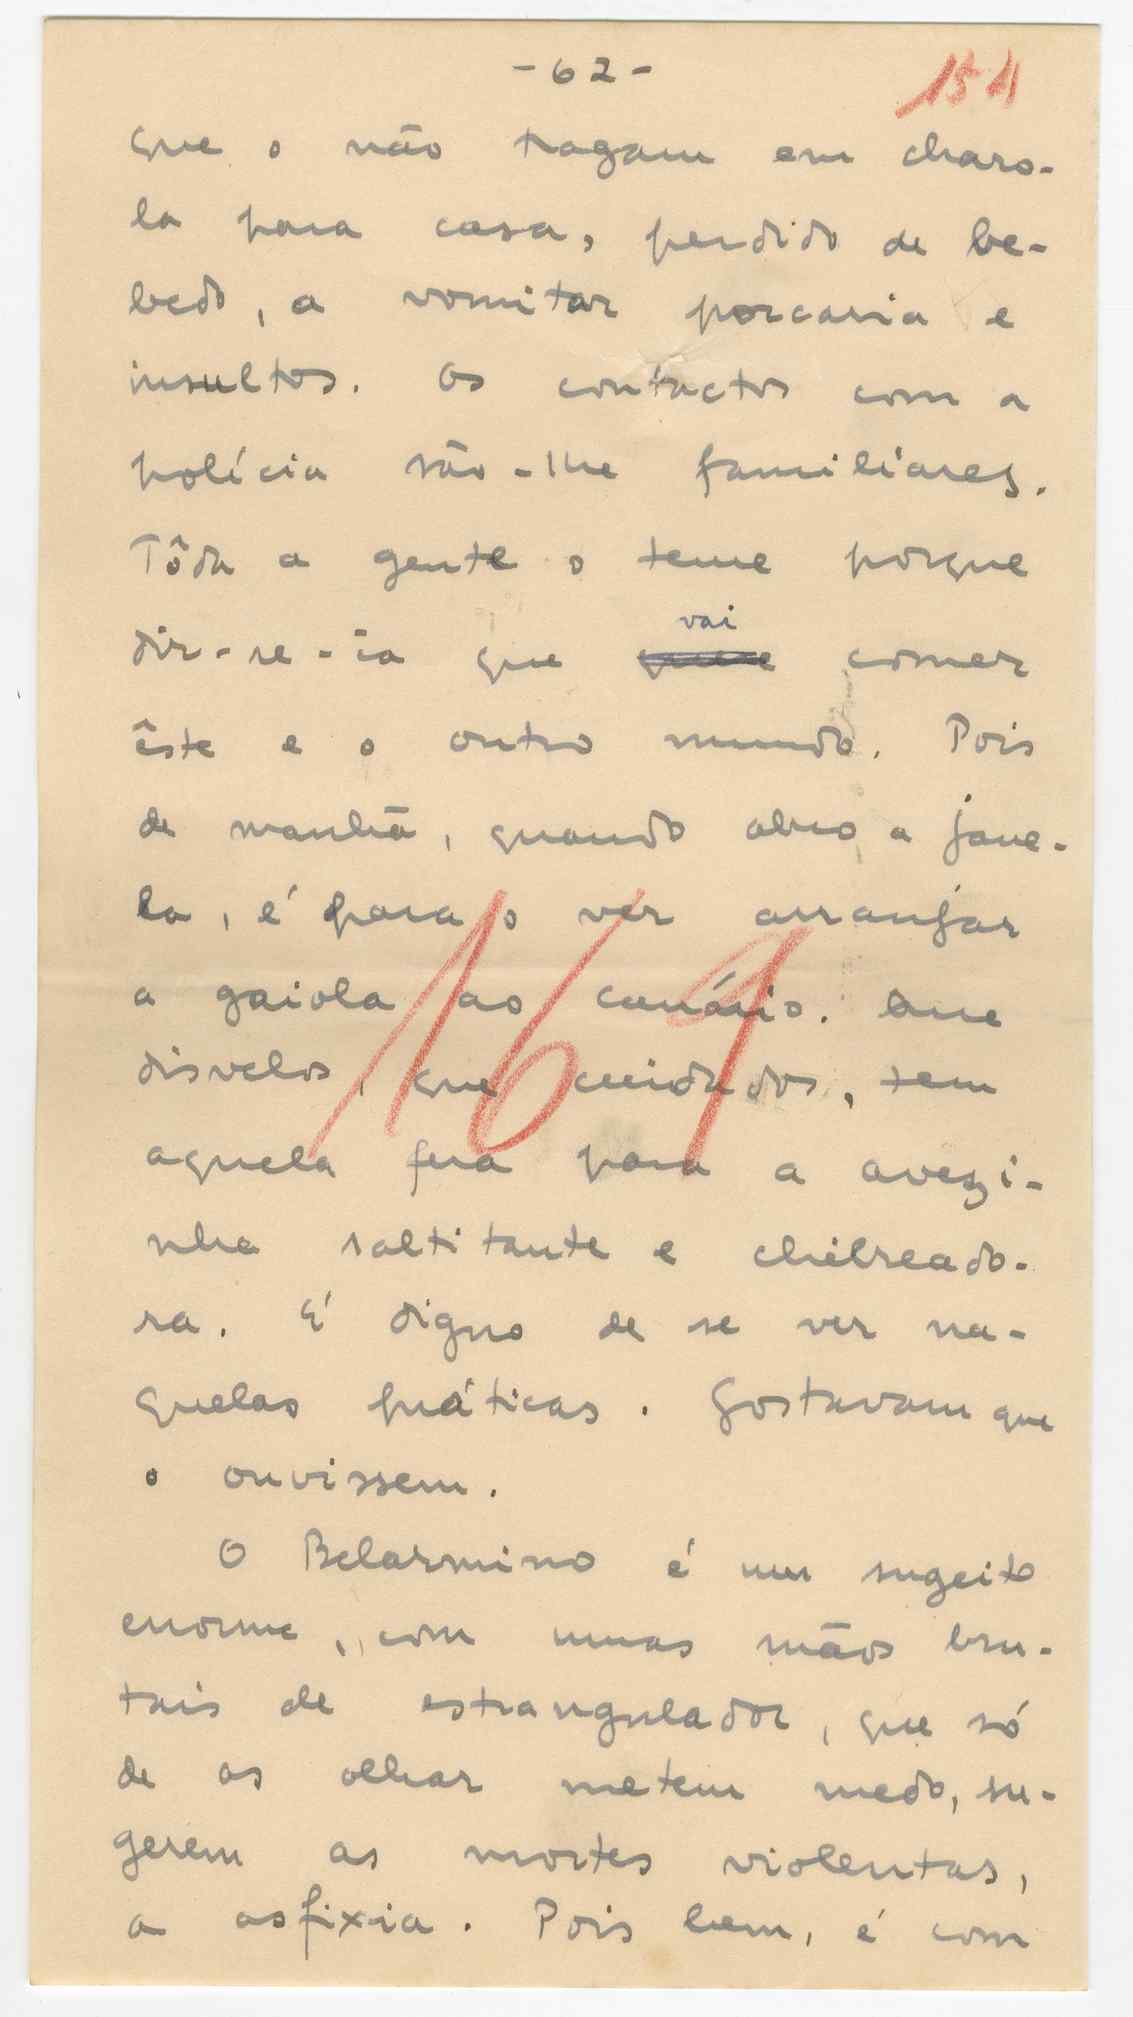 -62-
154
que o não tragam em charo-
la para casa, perdido de be-
bedo, a vomitar porcaria e
insultos. Os contactos com a
polícia são-lhe familiares.
Tôda a gente o teme porque
dir-se-ia que vai comer
êste e o outro mundo. Pois
de manhã, quando abro a jane-
la, é para o ver arranjar
a gaiola ao canário. Que
disvelos, que cuidados, tem
161
aquela fera para a avezi-
nha saltitante e chilreado-
ra. É digno de se ver na-
quelas práticas. Gostavam que
o ouvissem.
O Belarmino é um sugeito
enorme, com umas mãos bru-
tais de estrangulador, que só
de as olhar metem medo, su-
gerem as mortes violentas,
a asfixia. Pois bem, é com